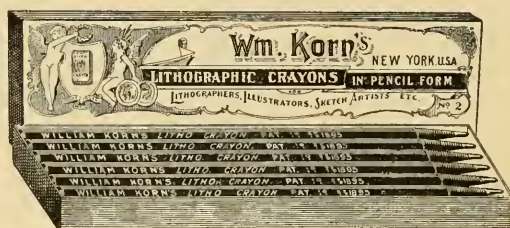 Wm. Korn's
NEW YORK. U.S.A
LITHOGRAPHIC CRAYONS IN PENCIL FORM
FOR
LITHOGRAPHERS, ILLUSTRATORS, SKETCH ARTISTS ETC.
No 2
WILLIAM KORNS LITHO CRAYON PAT.
WILLIAM KORNS LITHO CRAYON PAT.
WILLIAM KORNS LITHO CRAYON PAT.
WILLIAM KORNS LITHO CRAYON PAT.
WILLIAM KORNS LITHO CRAYON PAT.
WILLIAM KORNS LITHO CRAYON PAT.